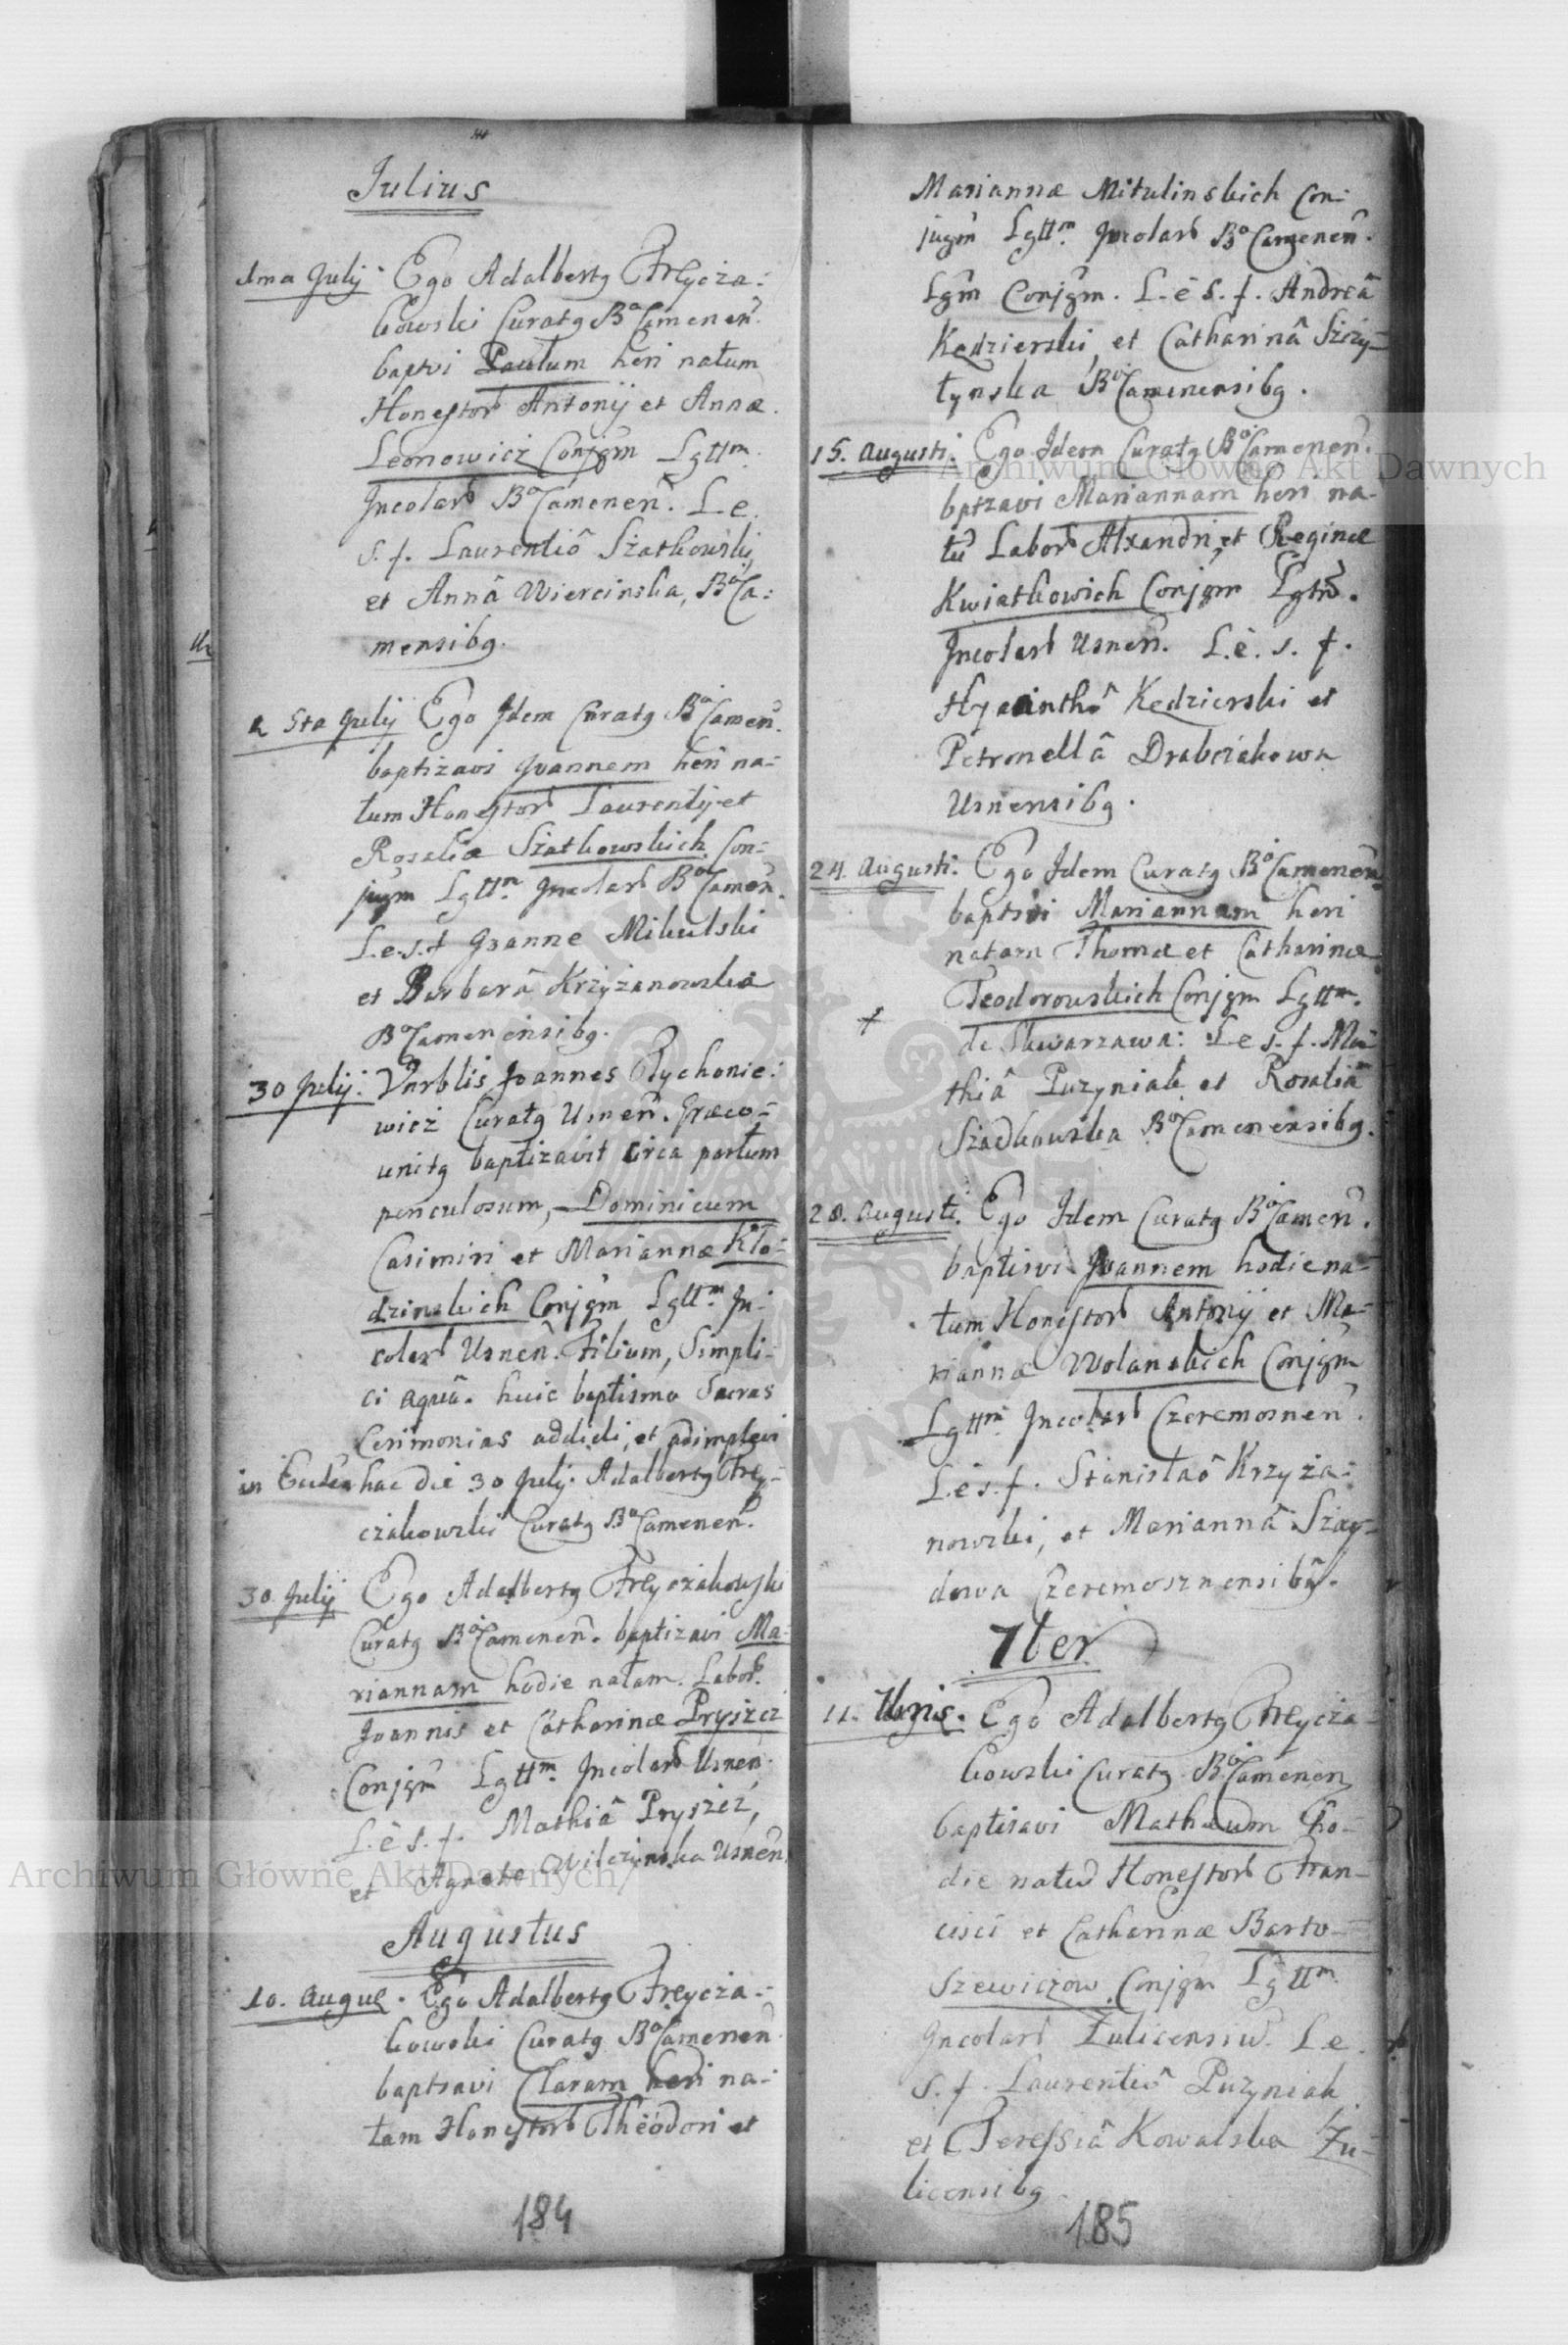 Julius
1ma Julij Ego Adalbertg Freycza:
kowski Curatg BoCamenen.
baptvi Paulum heri natum
Honestor Antonij et Annæ
Leonowicz Conjgm Lgttm.
Incolar BoCamenen. L.e.
s.f. Laurentiô Szatkowski,
et Annâ Wiercinska, BoCa:
mensibg.
a 5ta Julij Ego Idem Curatg BoCamen.
baptizavi Joannem heri na-
tum Honestor Laurentij et
Rosaliæ Szatkowskich Con-
jugm Lgttm. Incolar BoCamen.
L.e.s.f Joanne Mikulski
et Barbarâ Krzyżanowska
BoCamenensibg.
30 Julij. Vnrblis Joannes Tychonie:
wicz Curatg Usnen. Græco-
unitg baptizavit circa partum
periculosum, Dominicum
Casimiri et Mariannæ Kło-
dzinskich Conjgm Lgttm. In-
colar Usnen. Filium, Simpli-
ci aquâ. huic baptismo Sacras
Cerimonias addidi, et adimplevi
in hac die 30 Julij. Adalbertg Frey-
czakowski Curatg BoCamenen.
30. Julij Ego Adalbertg Freyczakowski
Curatg BoCamenen. baptizavi Ma-
riannam hodie natam. Labor.
Joannis et Catharinæ Pryszcz
Conjgm Lgttm. Incolar Usnen.
L.è s.f. Mathiâ Pryszcz,
et Agnete Wilczynska Usnen.
Augustus
10. Augus. Ego Adalbertg Freycza-
kowski Curatg BoCamenen
baptsavi Claram heri na-
tam Honestor Theodori et
184
Mariannæ Mitulinskich Con-
jugm Lgttm. Incolar BoCamenen.
Lgm Conjgm. L.è S.f. Andreâ
Kędzierski, et Catharinâ Szczy-
tynska BoCamenensibg.
15. Augusti. Ego Idem Curatg BoCamenen.
bptzavi Mariannam heri na-
tu Labor Alxandri et Reginæ
Kwiatkowich Conjgm Lgtm.
Incolar Usnen. L.è. s. f.
Hyacinthô Kędzierski et
Petronellâ Drabczakowa
Usnensibg.
24. Augusti. Ego Idem Curatg BoCamenen.
baptsvi Mariannam heri
natam Thomæ et Catharinæ
Teodorowskich Conjgm Lgttm.
+ de Skwarzawa: L e s.f. Ma-
thiâ Puzyniak et Rosaliâ
Szadkowska BoCamenensibg.
28. Augusti. Ego Idem Curatg BoCamen.
baptisvi Joannem hodie na-
tum Honestor Antonij et Ma-
riannæ Wolanskich Conjgm
Lgttm. Incolar Czeremosnen.
L.è s.f. Stanisłaô Krzyża-
nowski, et Mariannâ Szay-
dowa Czeremosznensibg.
7ber
11. 7bris. Ego Adalbertg Freycza-
kowski Curatg BoCamenen
baptisavi Mathæum ho-
die natu Honestor Fran-
cisci et Catharinæ Barto-
szewiczow Conjgm Lgttm
Incolar Żulicensiu. L e.
s.f. Laurentiô Puzyniak
et Teressiâ Kowalska Żu-
licensibg
185
Archiwum Główne Akt Dawnych
Archiwum Główne Akt Dawnych